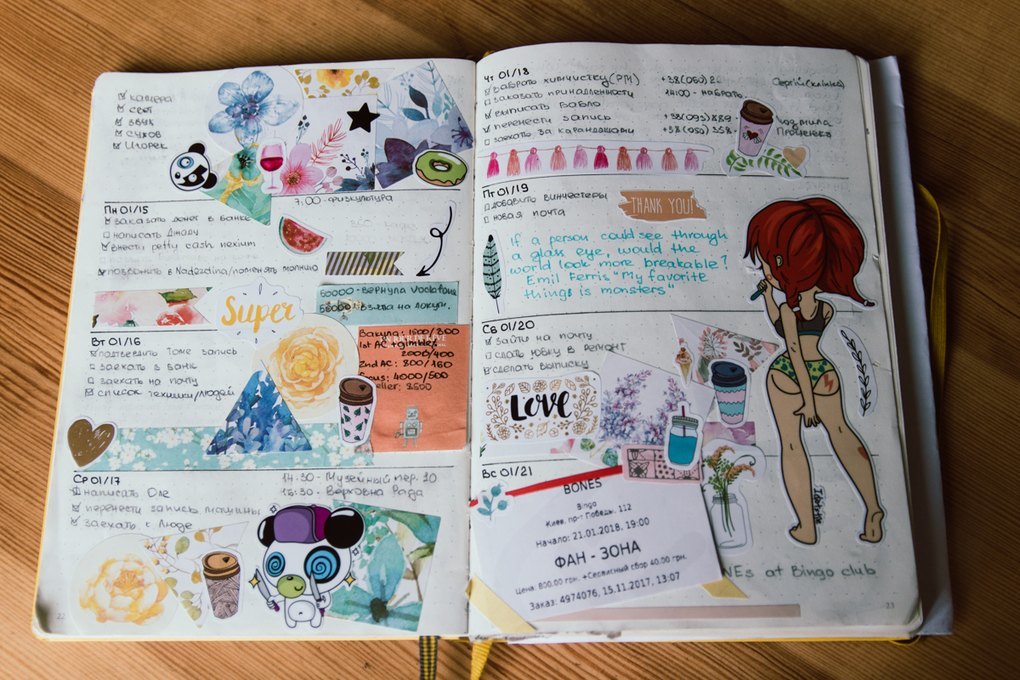 камера
свет
звук
Сучков
Игорек
Пн 01/15
7:00 - физкультура
заказать денег в банке
написать Джаду
внести petty cash nexium
позвонить в Nadezdina/поменять
Super
60000 - вернула Vodafone
взятка на локуч.
Вт 01/16
подтвердить Томе запись
заехать в банк
заехать на почту
список техники/людей
Бакула: 1500/300
1st AC + gimbles
2000/400
2nd AC: 800/160
Focus: 4000/500
3500
Ср 01/17
14:30 - Музейный пер. 10
16:30 - Верховна Рада
написать Оле
перенести запись машины
заехать к Люде
22
Чт 01/18
забрать химчистку (РТН) +38(050) 2
заказать принадлежности 14:00 - набрать
Сергій (клініка)
выписать бабло
перенести запись +38(095) 889
заехать за карандашами +38(050) 358
Людмила
Проценко
Пт 01/19
добавить винчестеры
новая почта
THANK YOU!
If a person could see through
a glass eye, would the
world look more breakable?
Emil Ferris "My favorite
things is monsters"
Сб 01/20
зайти на почту
сдать юбку в ремонт
сделать выписку
LOVE
Вс 01/21
BONES
Bingo
Киев, пр-т Победы, 112
Начало: 21.01.2018, 19:00
ФАН - ЗОНА
Цена: 800.00 грн. +Сервисный сбор 40.00 грн.
Заказ: 4974076, 15.11.2017, 13:07
NEs at Bingo club
23